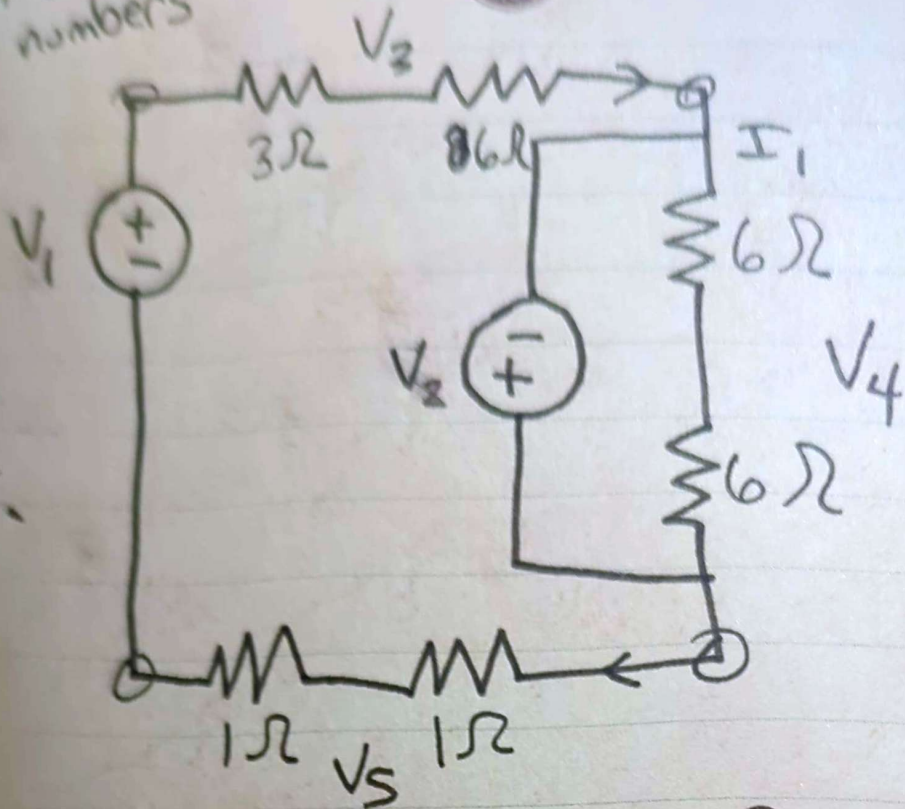 numbers
V₃
3Ω
6Ω
I₁
+
V₁
−
6Ω
−
+
V₄
6Ω
1Ω
1Ω
V₅